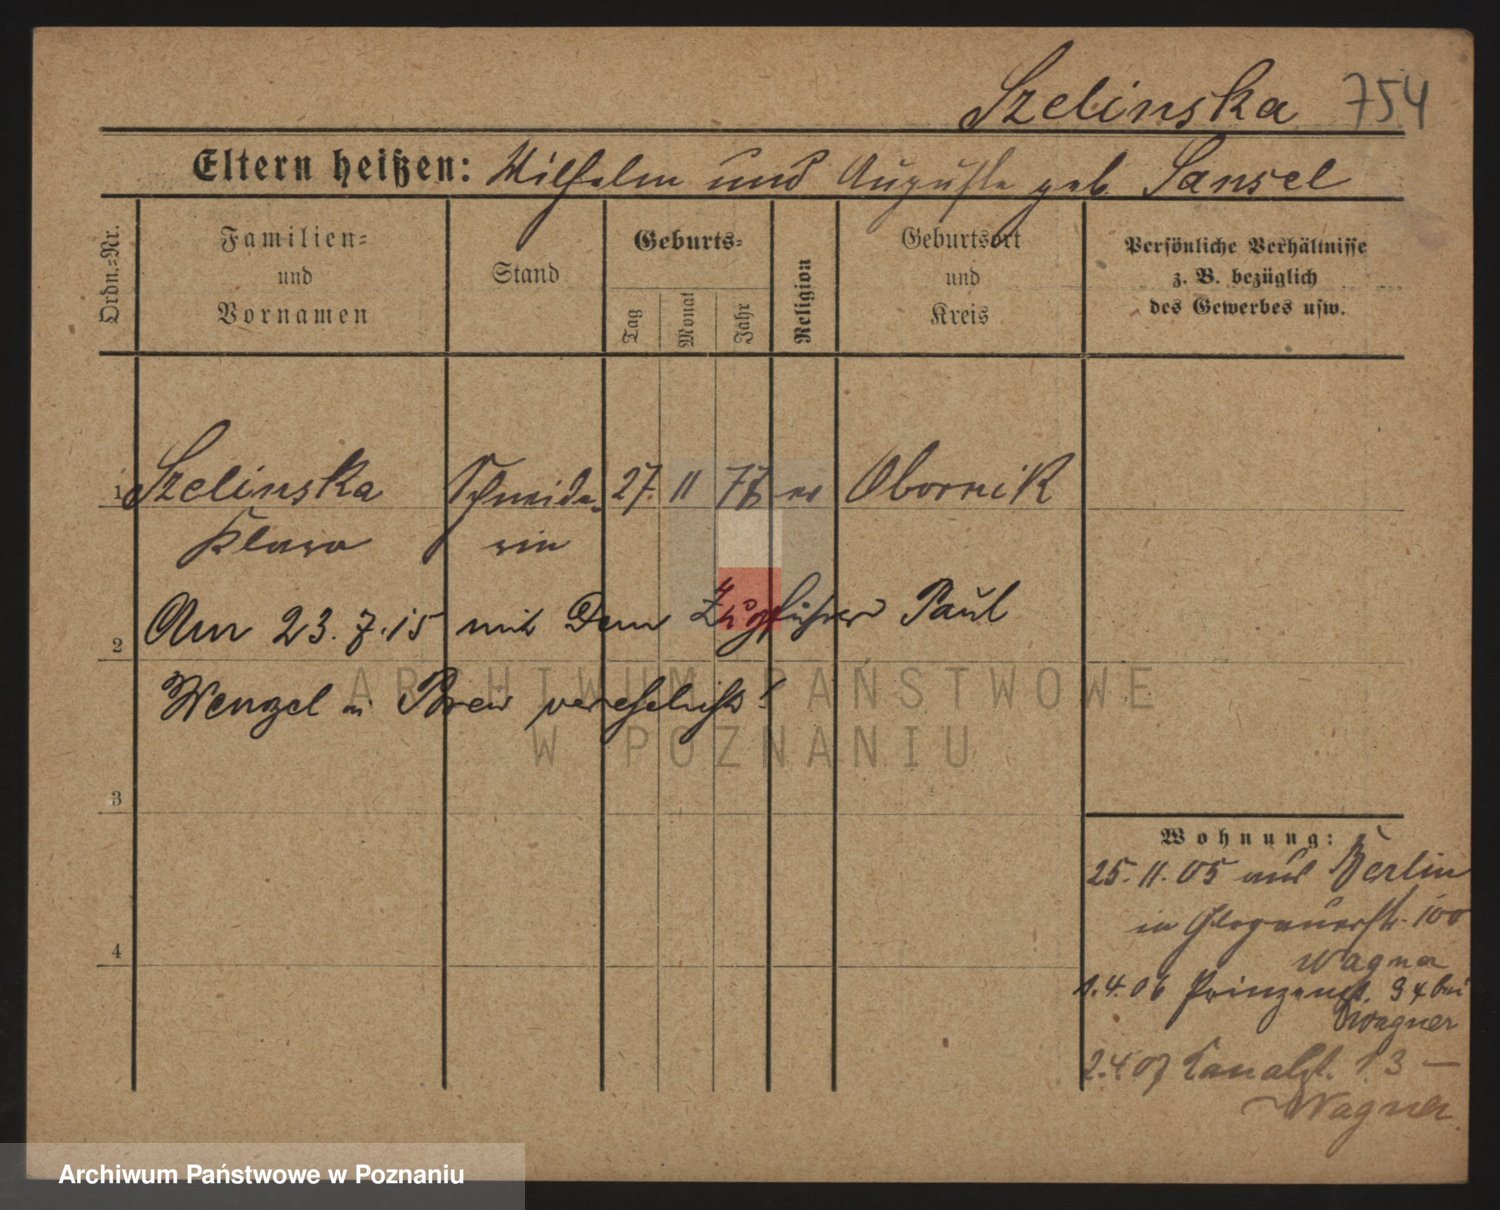 Szelinska 754
Eltern heißen: Wilhelm und Auguste geb. Sansel
Ordn.-Nr.
Familien-
und
Vornamen
Stand
Geburts-
Tag
Monat
Jahr
Religion
Geburtsort
und
Kreis
Persönliche Verhältnisse
z. B. bezüglich
des Gewerbes usw.
1 Szelinska Schneide- 27. 11 ev Obornik
Klara rin
Am 23.7.15 mit dem Zugführer Paul
2
Wenzel in verehelicht!
ARCHIWUM PAŃSTWOWE
W POZNANIU
3
4
Wohnung:
25.11.05 aus Berlin
in Glogauerstr. 100
Wagner
1.4.06 Prinzenst. bei
Wagner
2.4.07 Kanalst. 13 —
Wagner
Archiwum Państwowe w Poznaniu